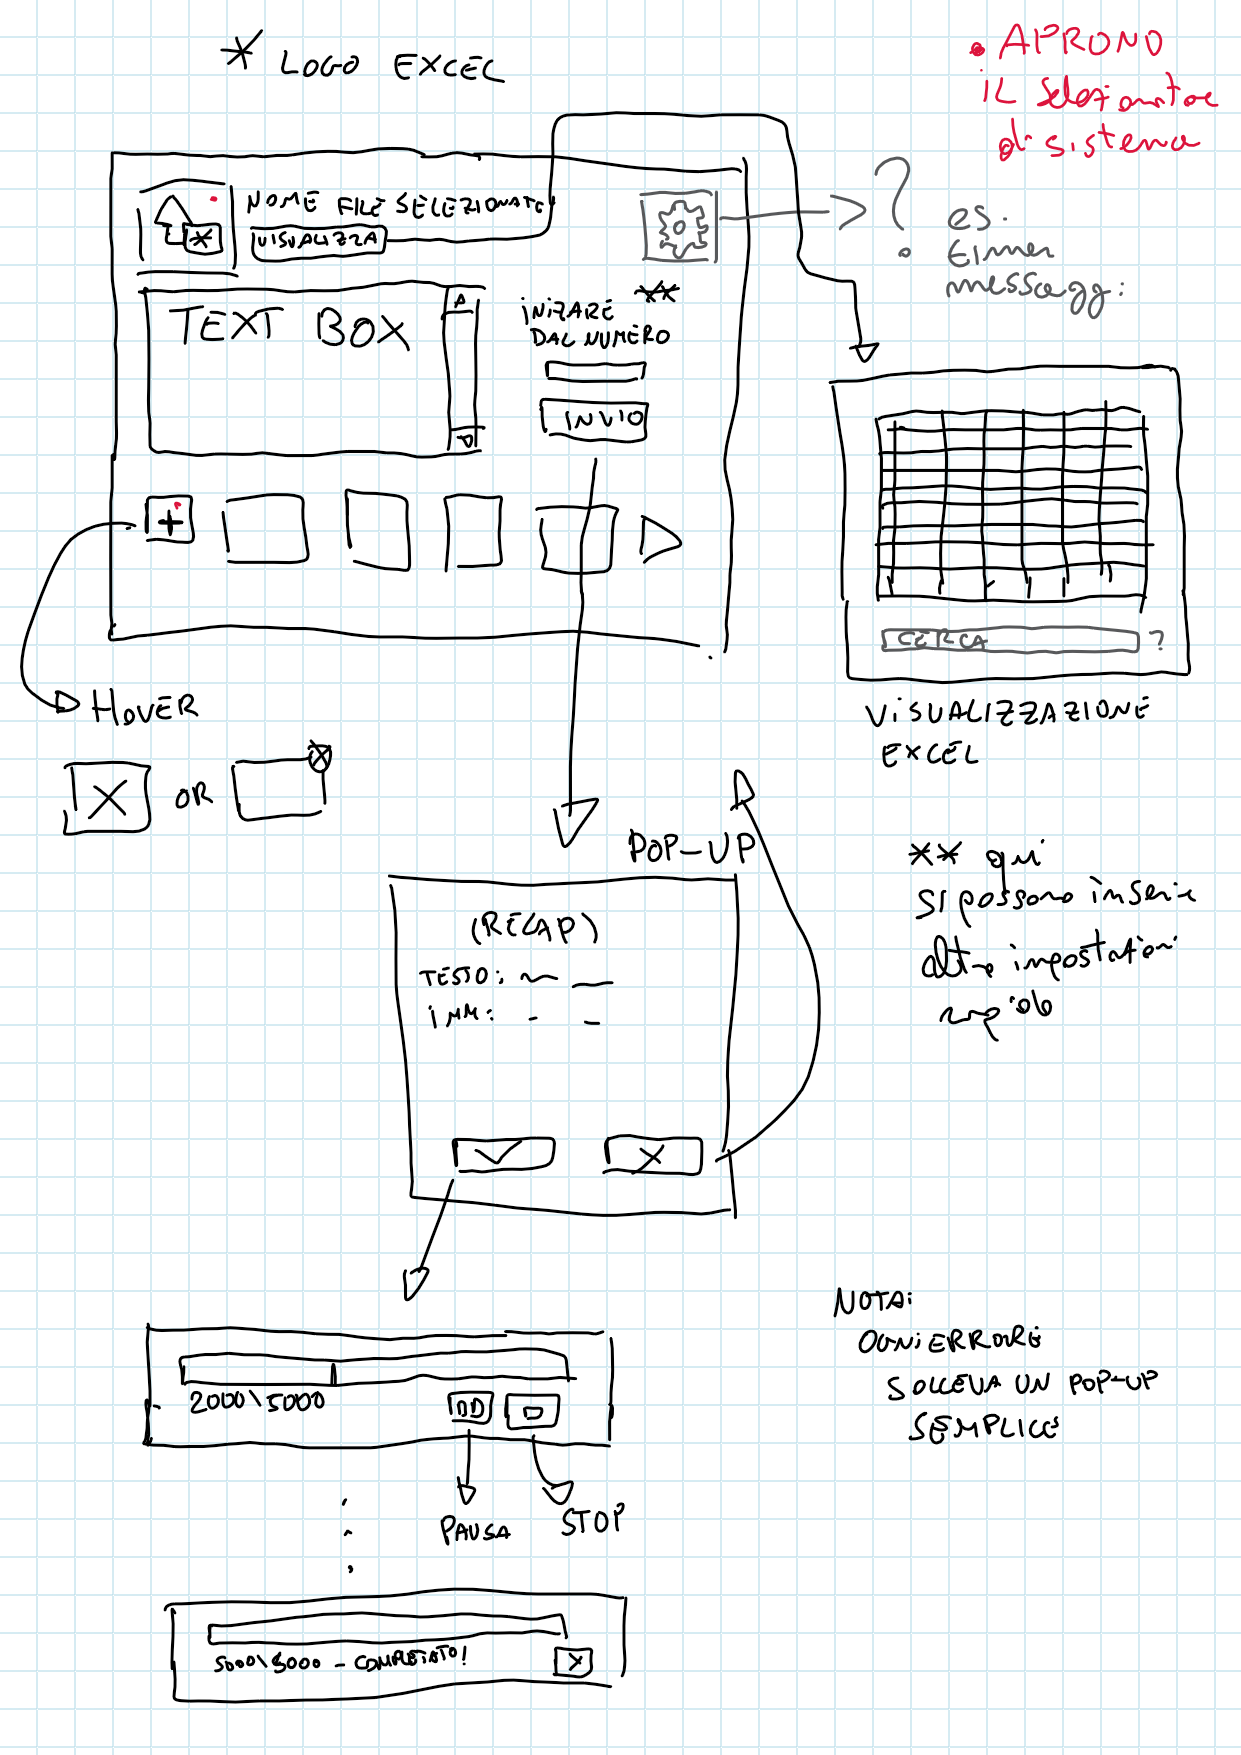 * LOGO EXCEL
• APRONO
IL selezionatore
di sistema
NOME FILE SELEZIONATO
*
VISUALIZZA
? es.
timer
messaggi
TEXT BOX
INIZARE **
DAL NUMERO
INVIO
+
CERCA ?
HOVER
VISUALIZZAZIONE
EXCEL
X OR X
POP-UP
** qui
si possono inserire
altre impostazioni
rapide
(RECAP)
TESTO:
IMM:
X
NOTA:
OGNI ERRORE
SOLLEVA UN POP-UP
SEMPLICE
2000\5000
PAUSA STOP
5000\5000 - COMPLETATO! X